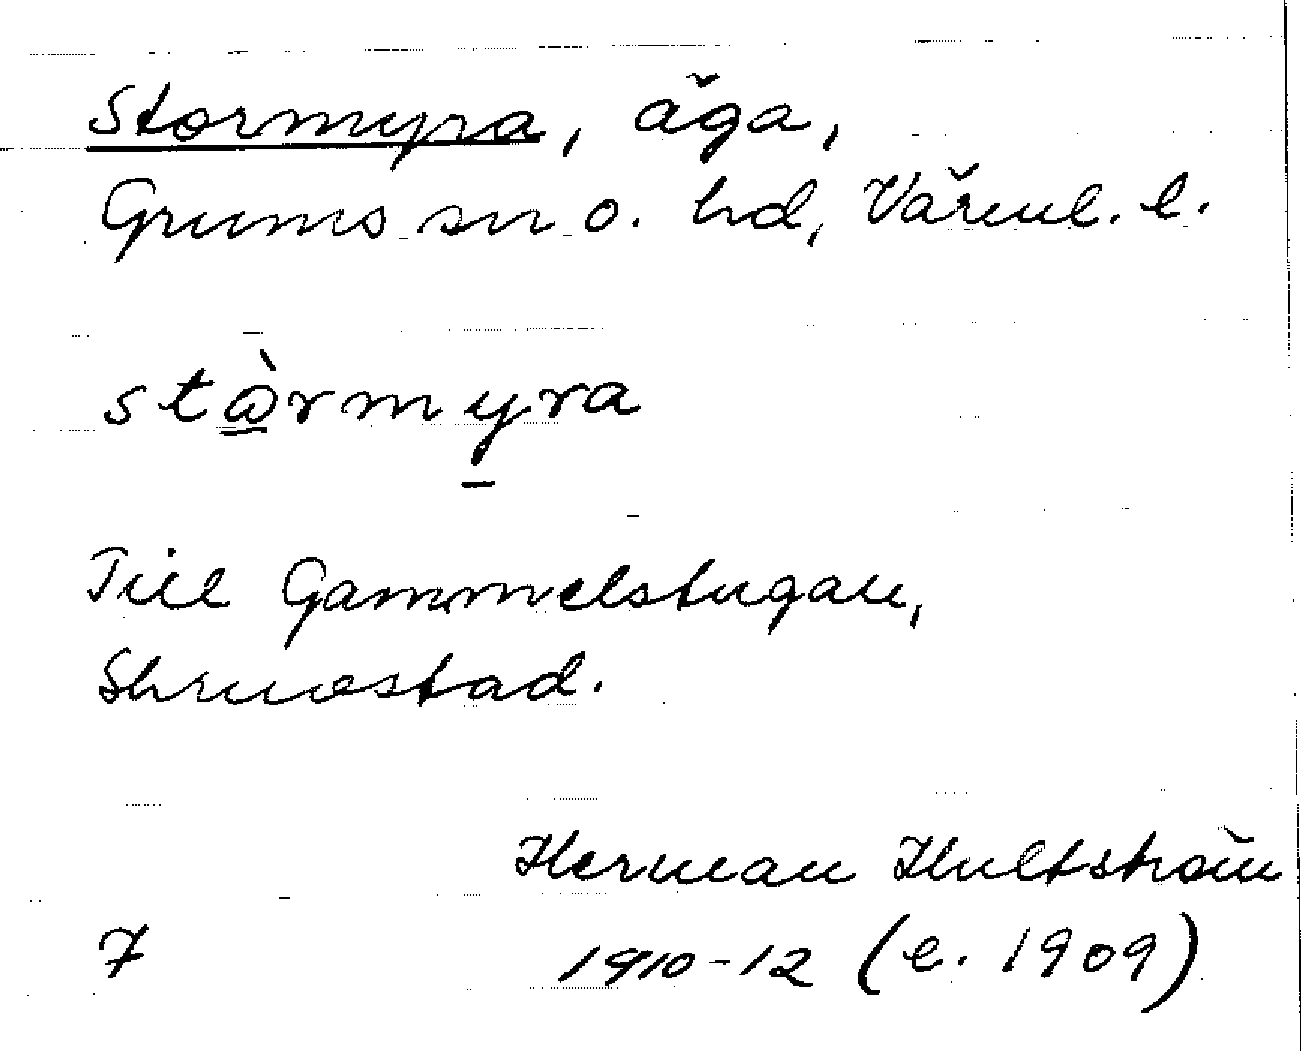 Stormyra, äga,
Grums sn o. hd, Värml. l.
stὼ̲rmy̱ra
Till Gammelstugan,
Skruvstad.
Herman Hultström
7 1910-12 (e. 1909)